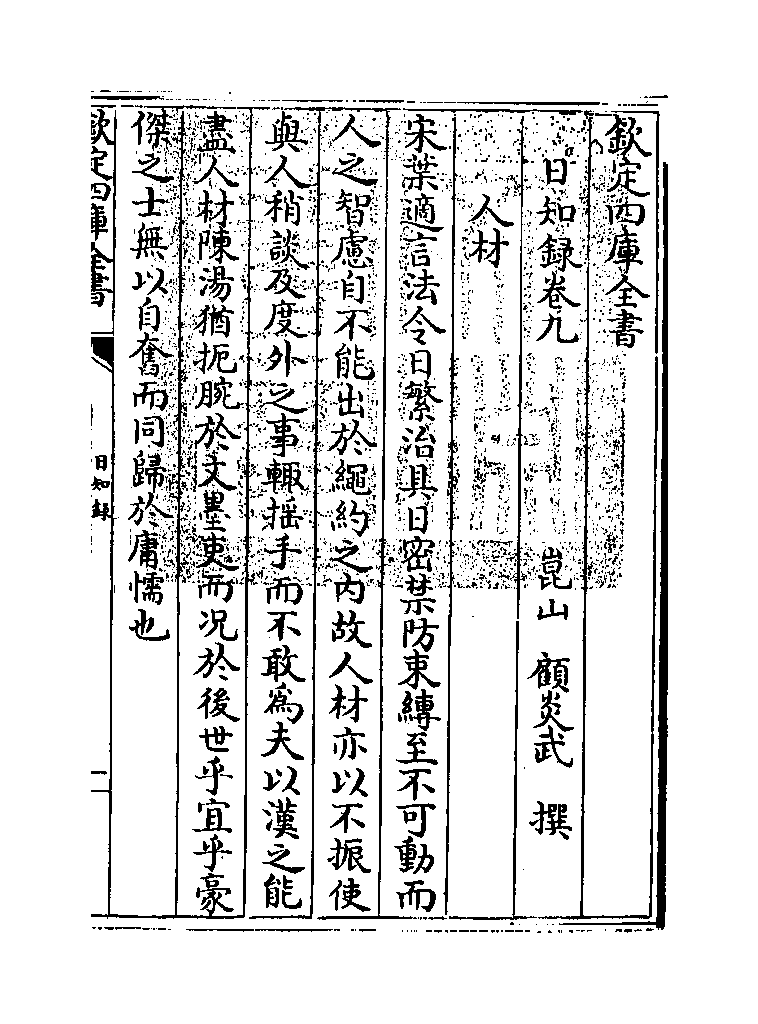 欽定四庫全書
日知録卷九
崑山 顧炎武 撰
人材
宋葉適言法令日繁治具日密禁防束縛至不可動而
人之智慮自不能出於繩約之内故人材亦以不振使
與人稍談及度外之事輙揺手而不敢為夫以漢之能
盡人材陳湯猶扼腕於文墨吏而况於後世乎宜乎豪
傑之士無以自奮而同歸於庸懦也
欽定四庫全書
日知録